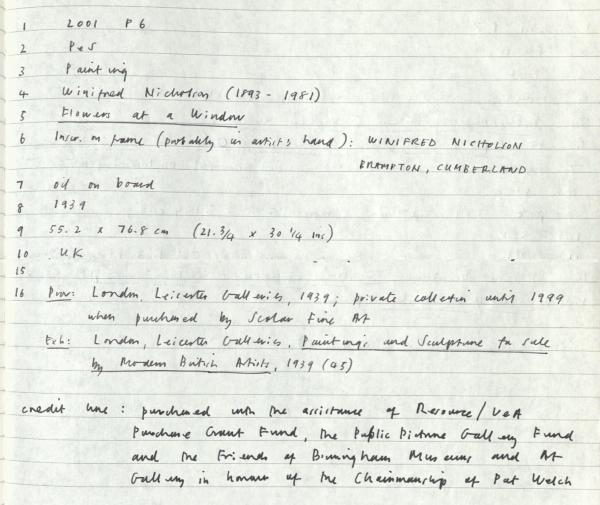 1 2001 P6
2 P&S
3 Painting
4 Winifred Nicholson (1893 - 1981)
5 Flowers at a Window
6 Inscr. on frame (probably in artist's hand): WINIFRED NICHOLSON
BRAMPTON, CUMBERLAND
7 oil on board
8 1939
9 55.2 x 76.8 cm (21.3/4 x 30 1/4 ins)
10 UK
15
16 Prov: London, Leicester Galleries, 1939; private collection until 1999
when purchased by Scolar Fine Art
Exh: London, Leicester Galleries, Paintings and Sculpture for sale
by Modern British Artists, 1939 (45)
credit line: purchased with the assistance of Resource/V&A
Purchase Grant Fund, the Public Picture Gallery Fund
and the Friends of Birmingham Museums and Art
Gallery in honour of the Chairmanship of Pat Welch